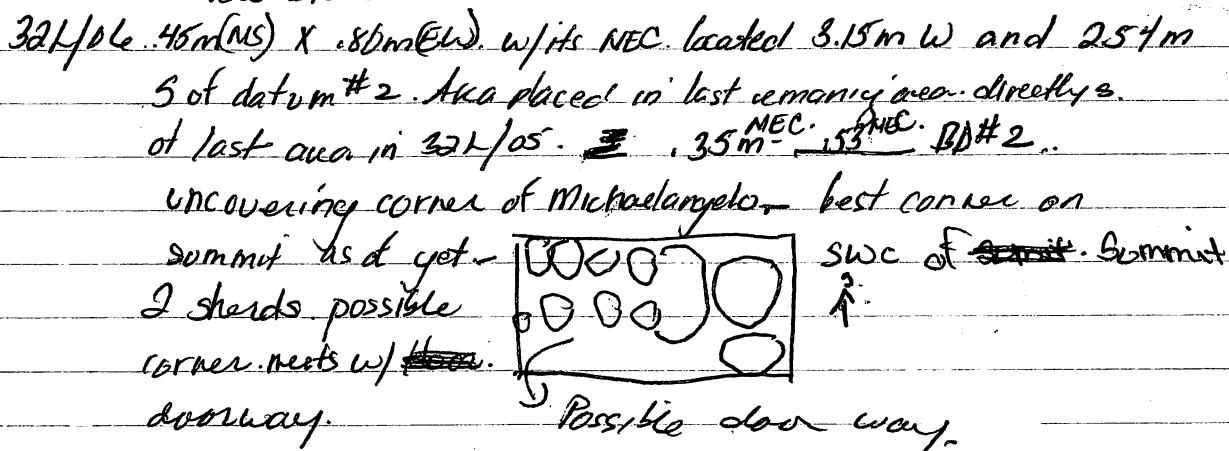 32L/D6 .45m(NS) X .80m(EW). w/its NEC. located 3.15m W and 254m
S of datum #2. Area placed in last remaning area. directly s.
of last area in 32L/05. .35m NEC. - .53 NEC. BD#2..
uncovering corner of Michaelangelo - best corner on
summit as of yet - SWC of Summit
2 sherds. possible
corner. meets w/
doorway.
Possible door way.